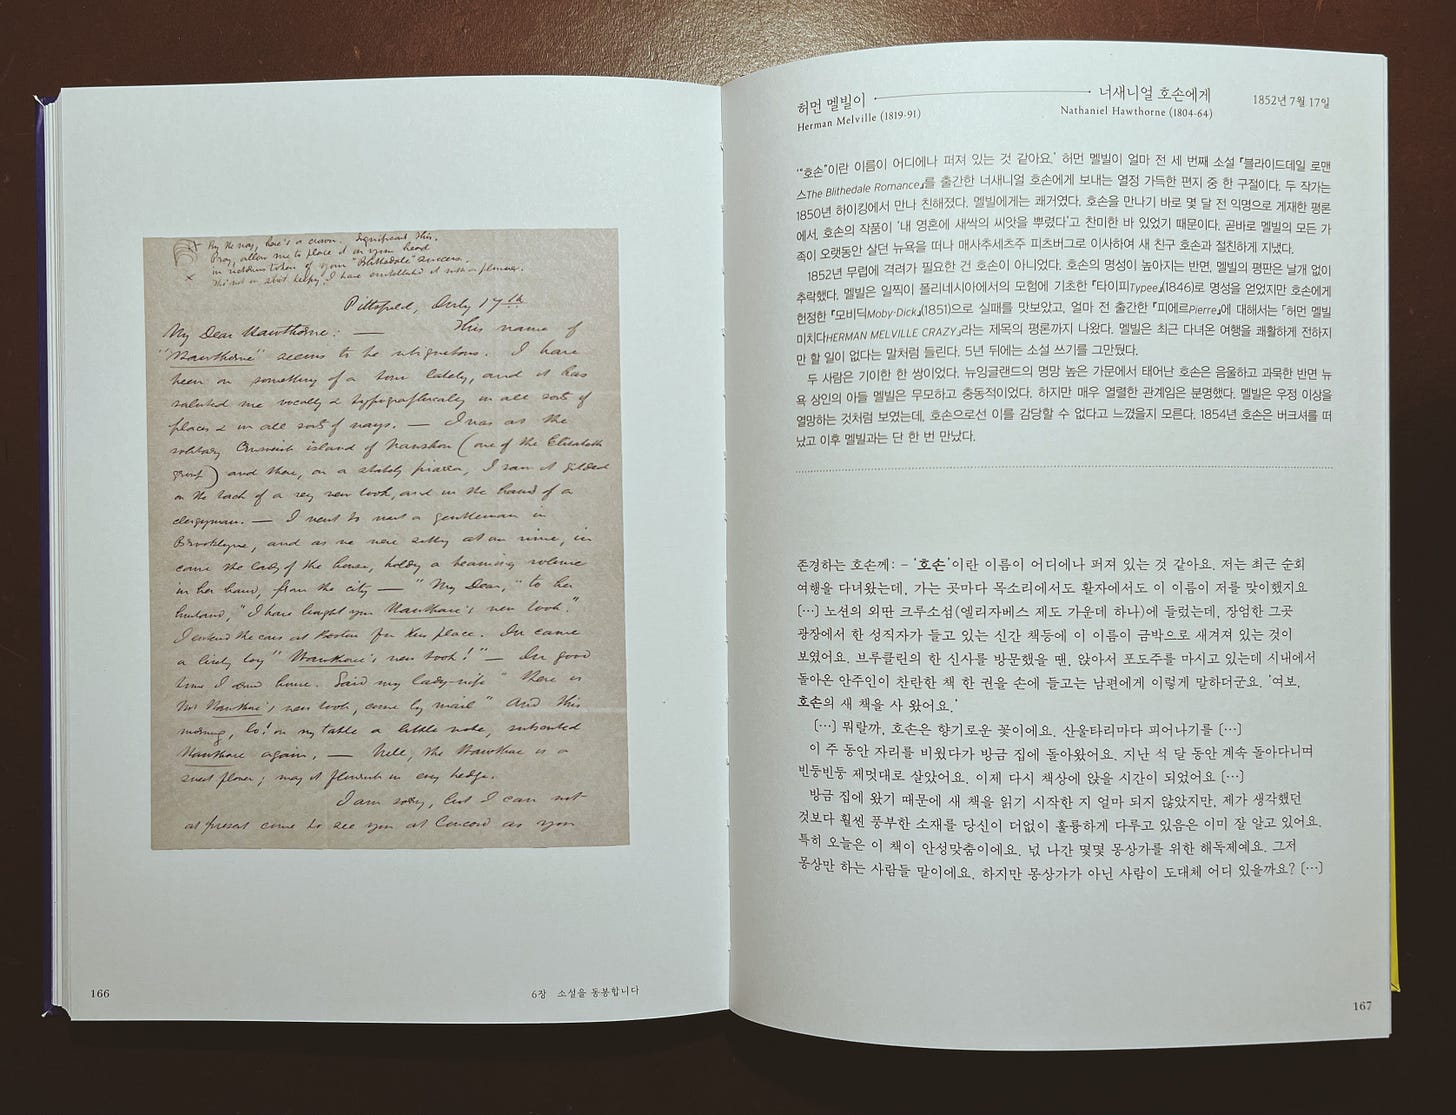 By the way, here's a crown. Significant this.
Pray, allow me to place it on your head
in victorious token of your "Blithedale" success.
Tho' not in strict keeping, I have embellished it with a plume.
Pittsfield, July 17th
My Dear Hawthorne: — This name of
"Hawthorne" seems to be ubiquitous. I have
been on something of a tour lately, and it has
saluted me vocally & typographically in all sorts of
places & in all sorts of ways. — I was at the
solitary Crusoeish island of Naushon (one of the Elizabeth
group) and there, on a stately piazza, I saw it gilded
on the back of a very new book, and in the hands of a
clergyman. — I went to visit a gentleman in
Brooklyne, and as we were sitting at our wine, in
came the lady of the house, holding a beaming volume
in her hand, from the city — "My Dear," to her
husband, "I have brought you Hawthorne's new book."
I entered the cars at Boston for this place. In came
a lively boy "Hawthorne's new book!" — In good
time I arrived home. Said my lady-wife "there is
Mr Hawthorne's new book, come by mail" And this
morning, lo! on my table a little note, subscribed
Hawthorne again. — Well, the Hawthorne is a
sweet flower; may it flourish in every hedge.
I am sorry, but I can not
at present come to see you at Concord as you
166
6장 소설을 동봉합니다
허먼 멜빌이 너새니얼 호손에게 1852년 7월 17일
Herman Melville (1819-91) Nathaniel Hawthorne (1804-64)
'"호손"이란 이름이 어디에나 퍼져 있는 것 같아요.' 허먼 멜빌이 얼마 전 세 번째 소설 『블라이드데일 로맨
스The Blithedale Romance』를 출간한 너새니얼 호손에게 보내는 열정 가득한 편지 중 한 구절이다. 두 작가는
1850년 하이킹에서 만나 친해졌다. 멜빌에게는 쾌거였다. 호손을 만나기 바로 몇 달 전 익명으로 게재한 평론
에서, 호손의 작품이 '내 영혼에 새싹의 씨앗을 뿌렸다'고 찬미한 바 있었기 때문이다. 곧바로 멜빌의 모든 가
족이 오랫동안 살던 뉴욕을 떠나 매사추세츠주 피츠버그로 이사하여 새 친구 호손과 절친하게 지냈다.
1852년 무렵에 격려가 필요한 건 호손이 아니었다. 호손의 명성이 높아지는 반면, 멜빌의 평판은 날개 없이
추락했다. 멜빌은 일찍이 폴리네시아에서의 모험에 기초한 『타이피Typee』(1846)로 명성을 얻었지만 호손에게
헌정한 『모비딕Moby-Dick』(1851)으로 실패를 맛보았고, 얼마 전 출간한 『피에르Pierre』에 대해서는 「허먼 멜빌
미치다HERMAN MELVILLE CRAZY」라는 제목의 평론까지 나왔다. 멜빌은 최근 다녀온 여행을 쾌활하게 전하지
만 할 일이 없다는 말처럼 들린다. 5년 뒤에는 소설 쓰기를 그만뒀다.
두 사람은 기이한 한 쌍이었다. 뉴잉글랜드의 명망 높은 가문에서 태어난 호손은 음울하고 과묵한 반면 뉴
욕 상인의 아들 멜빌은 무모하고 충동적이었다. 하지만 매우 열렬한 관계임은 분명했다. 멜빌은 우정 이상을
열망하는 것처럼 보였는데, 호손으로선 이를 감당할 수 없다고 느꼈을지 모른다. 1854년 호손은 버크셔를 떠
났고 이후 멜빌과는 단 한 번 만났다.
존경하는 호손께: – '호손'이란 이름이 어디에나 퍼져 있는 것 같아요. 저는 최근 순회
여행을 다녀왔는데, 가는 곳마다 목소리에서도 활자에서도 이 이름이 저를 맞이했지요
[…] 노션의 외딴 크루소섬(엘리자베스 제도 가운데 하나)에 들렀는데, 장엄한 그곳
광장에서 한 성직자가 들고 있는 신간 책등에 이 이름이 금박으로 새겨져 있는 것이
보였어요. 브루클린의 한 신사를 방문했을 땐, 앉아서 포도주를 마시고 있는데 시내에서
돌아온 안주인이 찬란한 책 한 권을 손에 들고는 남편에게 이렇게 말하더군요. '여보,
호손의 새 책을 사 왔어요.'
[…] 뭐랄까, 호손은 향기로운 꽃이에요. 산울타리마다 피어나기를 […]
이 주 동안 자리를 비웠다가 방금 집에 돌아왔어요. 지난 석 달 동안 계속 돌아다니며
빈둥빈둥 제멋대로 살았어요. 이제 다시 책상에 앉을 시간이 되었어요 […]
방금 집에 왔기 때문에 새 책을 읽기 시작한 지 얼마 되지 않았지만, 제가 생각했던
것보다 훨씬 풍부한 소재를 당신이 더없이 훌륭하게 다루고 있음은 이미 잘 알고 있어요.
특히 오늘은 이 책이 안성맞춤이에요. 넋 나간 몇몇 몽상가를 위한 해독제예요. 그저
몽상만 하는 사람들 말이에요. 하지만 몽상가가 아닌 사람이 도대체 어디 있을까요? […]
167